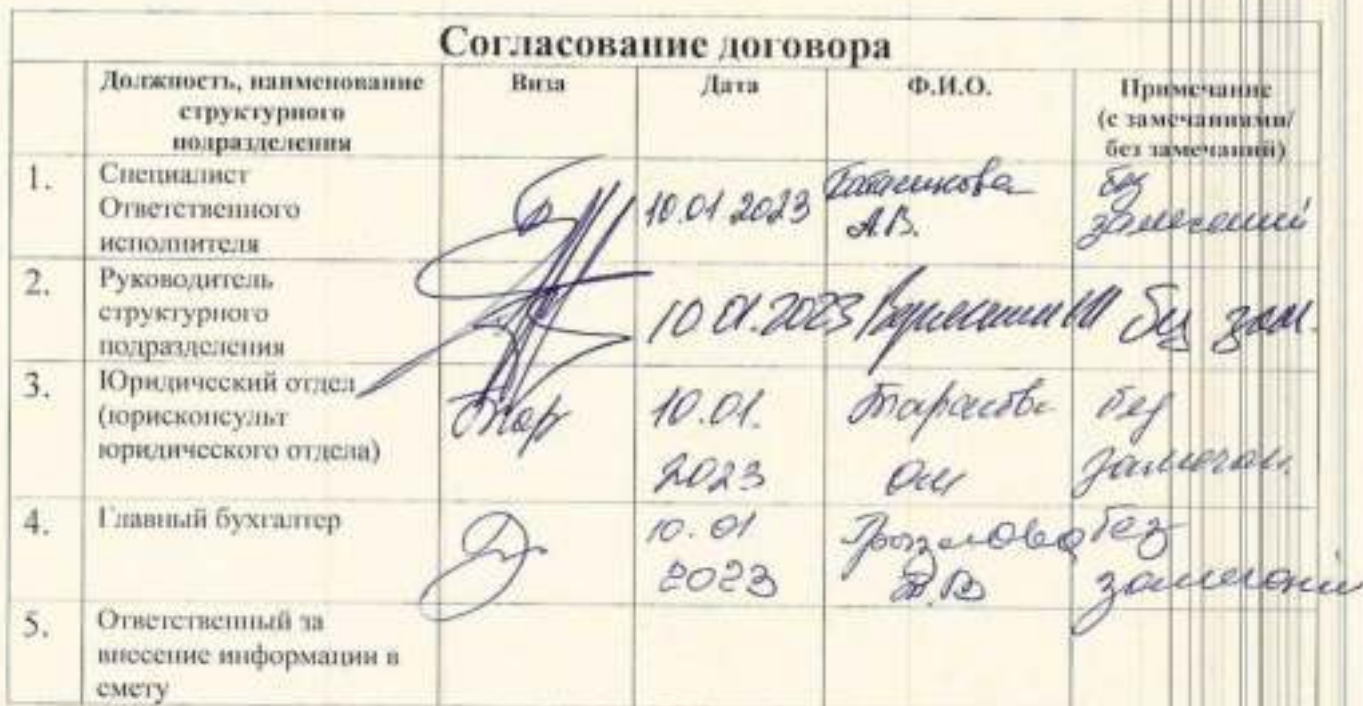 Согласование договора
Должность, наименование структурного подразделения
Виза
Дата
Ф.И.О.
Примечание (с замечаниями/ без замечаний)
1.
Специалист
Ответственного
исполнителя
10.01 2023
А.В.
без
замечаний
2.
Руководитель
структурного
подразделения
10.01.2023
без зам.
3.
Юридический отдел
(юрисконсульт
юридического отдела)
10.01.
2023
Тарасова
без
замечан.
4.
Главный бухгалтер
10.01
2023
без
замечаний
5.
Ответственный за
внесение информации в
смету